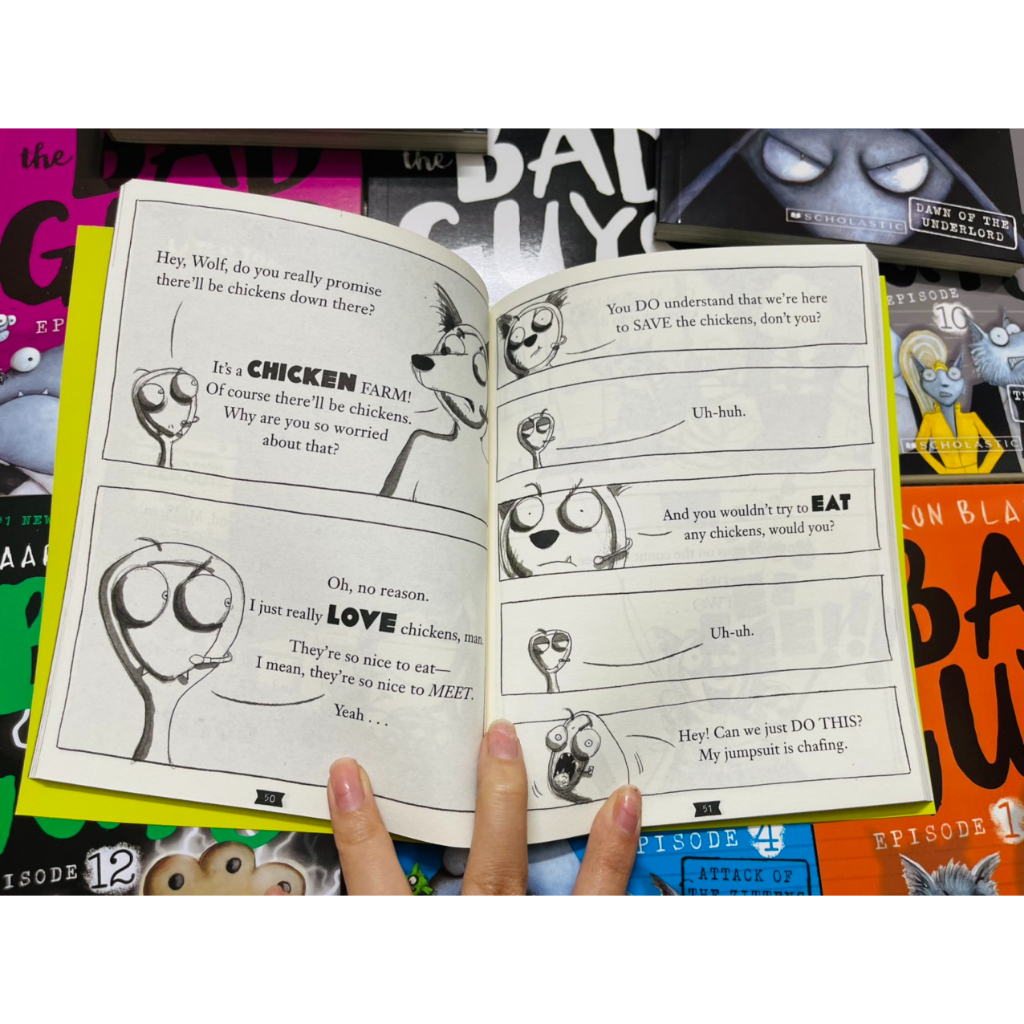 the
BAD
the
BAD
GUYS
SCHOLASTIC
DAWN OF THE
UNDERLORD
Hey, Wolf, do you really promise
there'll be chickens down there?
It's a CHICKEN FARM!
Of course there'll be chickens.
Why are you so worried
about that?
Oh, no reason.
I just really LOVE chickens, man.
They're so nice to eat—
I mean, they're so nice to MEET.
Yeah . . .
50
You DO understand that we're here
to SAVE the chickens, don't you?
Uh-huh.
And you wouldn't try to EAT
any chickens, would you?
Uh-uh.
Hey! Can we just DO THIS?
My jumpsuit is chafing.
51
EPISODE
10
SCHOLASTIC
EPISODE 12
EPISODE 4
ATTACK OF
THE ZITTENS
EPISODE 1